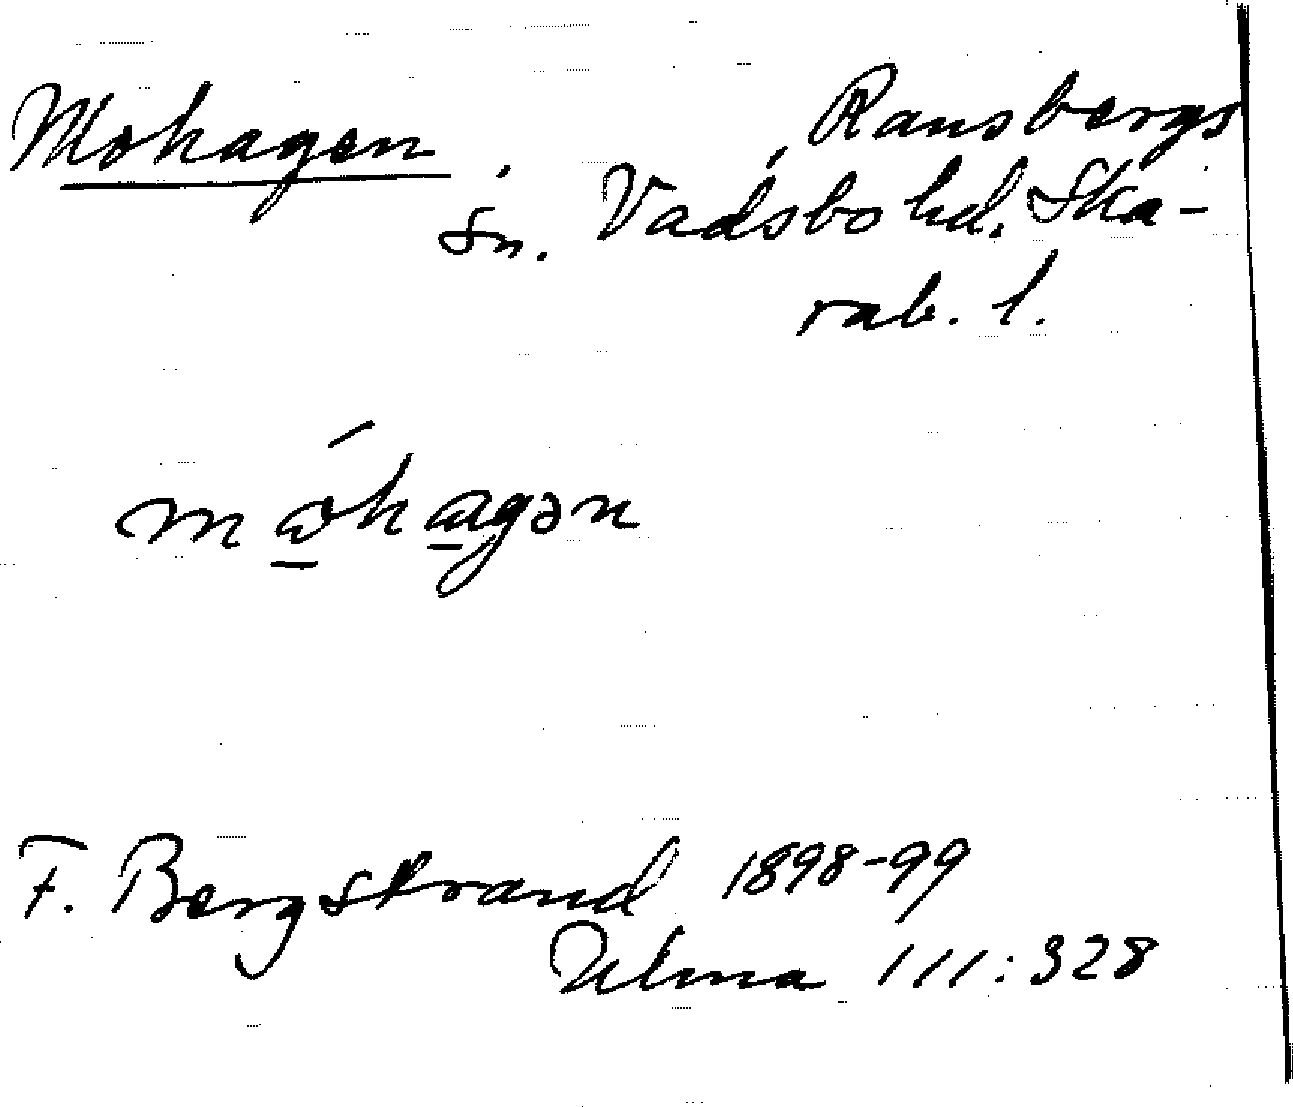 Mohagen, Ransbergs
sn. Vadsbo hd. Ska-
rab. l.
F. Bergstrand 1898-99
Ulma 111:328